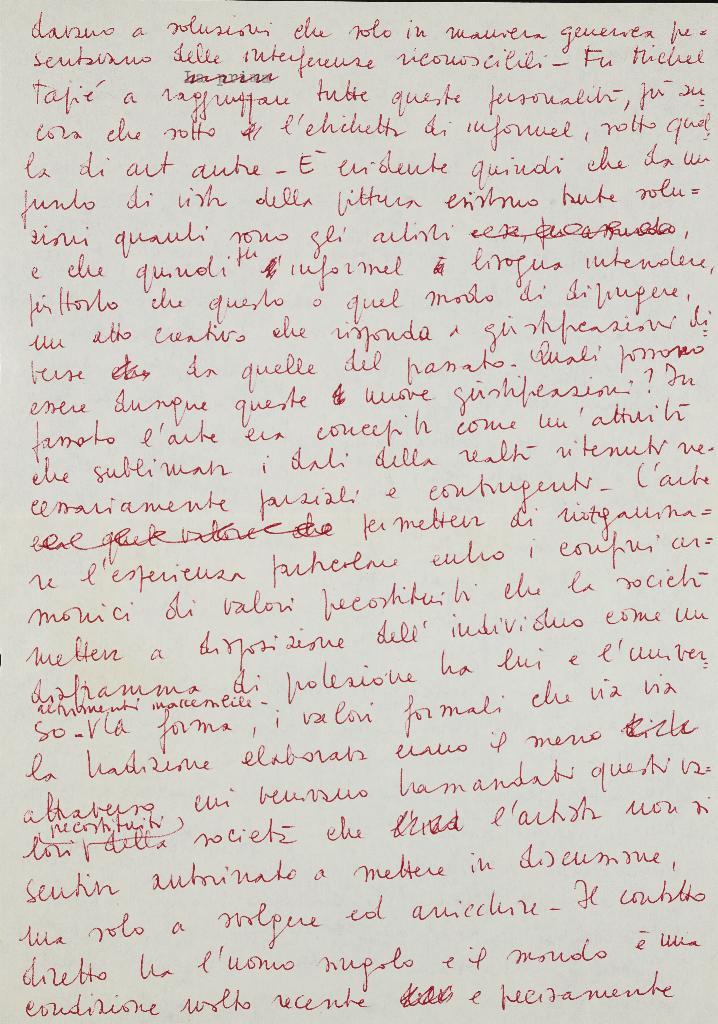 davano a soluzioni che solo in maniera generica pre=
sentavano delle interferenze riconoscibili - Fu Michel
la prima
Tapié a raggruppare tutte queste personalità, più an=
cora che sotto l'etichetta di informel, sotto quel=
la di art autre - È evidente quindi che da un
punto di vista della pittura esistono tante solu=
zioni quanti sono gli artisti
e che quindi per informel bisogna intendere,
piuttosto che questo o quel modo di dipingere,
un atto creativo che risponda a giustificazioni di=
verse da quelle del passato - Quali possono
essere dunque queste nuove giustificazioni? In
passato l'arte era concepita come un'attività
che sublimava i dati della realtà ritenuti ne=
cessariamente parziali e contingenti - L'arte
permetteva di riorganizza=
re l'esperienza particolare entro i confini ar=
monici di valori precostituiti che la società
metteva a disposizione dell'individuo come un
diaframma di protezione tra lui e l'univer=
altrimenti inaccessibile -
so - La forma, i valori formali che via via
la tradizione elaborava erano il mezzo
attraverso cui venivano tramandati questi va=
precostituiti
lori della società che l'artista non si
sentiva autorizzato a mettere in discussione,
ma solo a svolgere ed arricchire - Il contatto
diretto tra l'uomo singolo e il mondo è una
condizione molto recente e precisamente